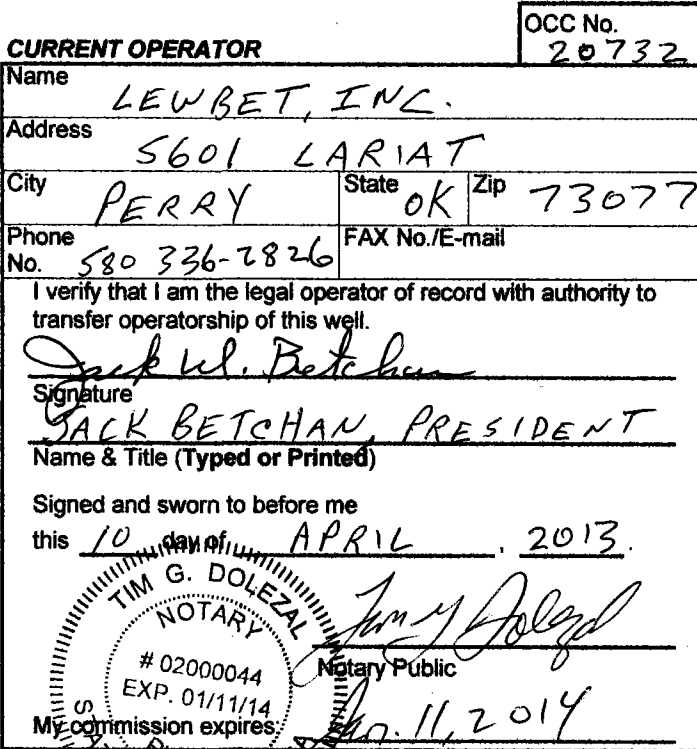 OCC No.
20732
CURRENT OPERATOR
Name
LEWBET, INC.
Address
5601 LARIAT
City
PERRY
State
OK
Zip
73077
Phone
No. 580 336-2826
FAX No./E-mail
I verify that I am the legal operator of record with authority to
transfer operatorship of this well.
Jack W. Betchan
Signature
JACK BETCHAN, PRESIDENT
Name & Title (Typed or Printed)
Signed and sworn to before me
this 10 day of APRIL, 2013.
TIM G. DOLEZAL
NOTARY
# 02000044
EXP. 01/11/14
Tim G Dolezal
Notary Public
My commission expires: Jan. 11, 2014